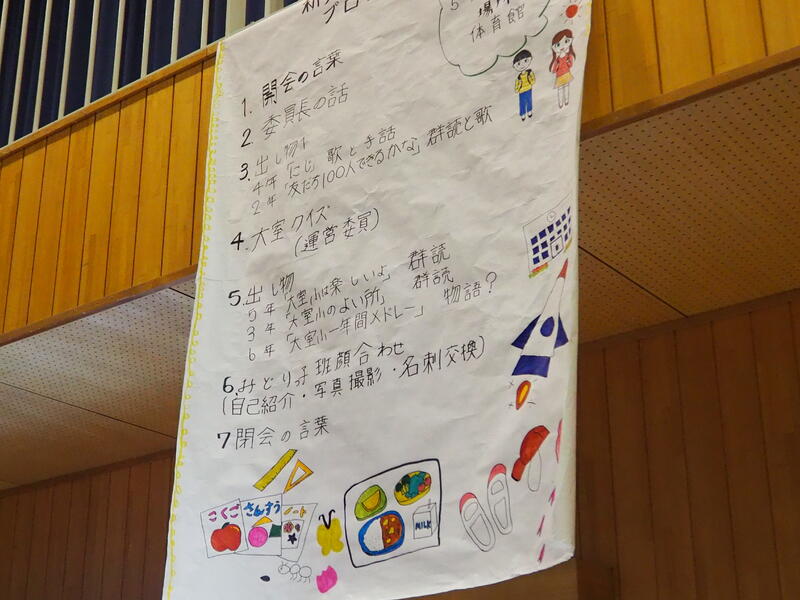 プロ
場所
体育館
1. 開会の言葉
2. 委員長の話
3. 出し物
4年「にじ」歌と手話
2年「友だち100人できるかな」群読と歌
4. 大室クイズ
(運営委員)
5. 出し物
5年「大室小は楽しいよ」群読
3年「大室小のよい所」群読
6年「大室小一年間メドレー」物語?
6. みどりっ子班顔合わせ
(自己紹介・写真撮影・名刺交換)
7 閉会の言葉
こくご
さんすう
ノート
MILK